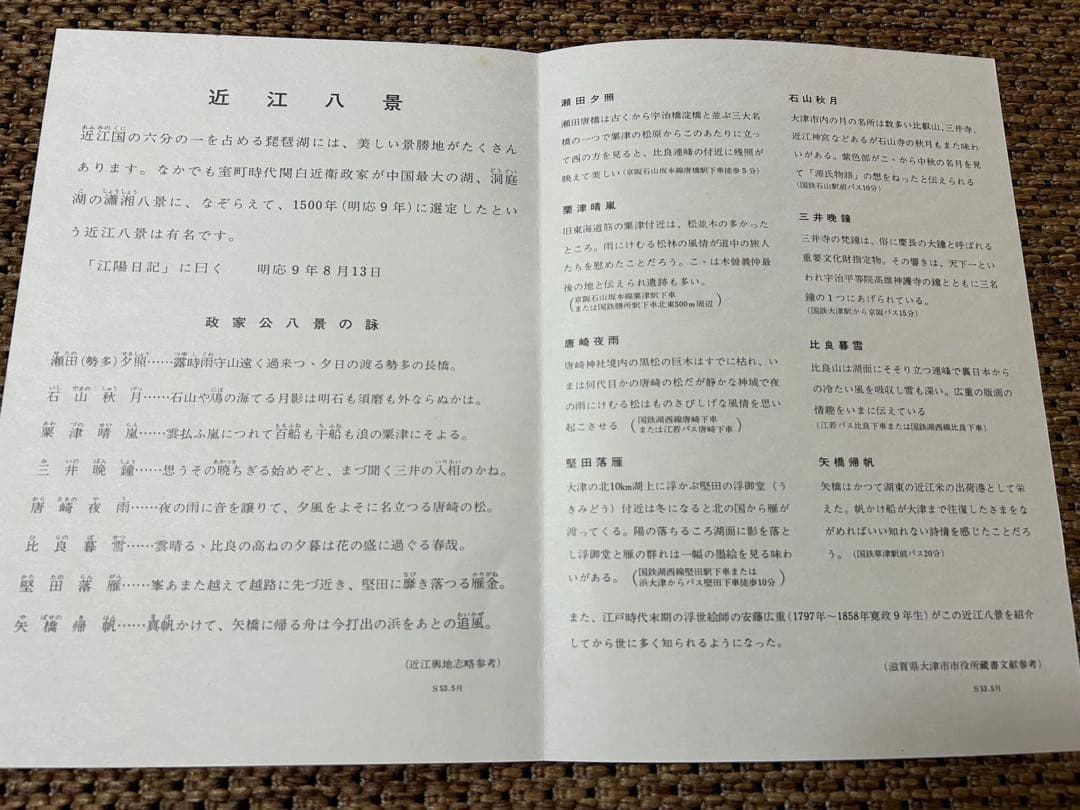 近江八景
近江国の六分の一を占める琵琶湖には、美しい景勝地がたくさん
あります。なかでも室町時代関白近衛政家が中国最大の湖、洞庭
湖の瀟湘八景に、なぞらえて、1500年(明応9年)に選定したとい
う近江八景は有名です。
「江陽日記」に曰く 明応9年8月13日
政家公八景の詠
瀬田(勢多)夕照……露時雨守山遠く過来つゝ夕日の渡る勢多の長橋。
石山秋月……石山や鳰の海てる月影は明石も須磨も外ならぬかは。
粟津晴嵐……雲払ふ嵐につれて百船も千船も浪の粟津にそよる。
三井晩鐘……思うその暁ちぎる始めぞと、まづ聞く三井の入相のかね。
唐崎夜雨……夜の雨に音を譲りて、夕風をよそに名立つる唐崎の松。
比良暮雪……雲晴るゝ比良の高ねの夕暮は花の盛に過ぐる春哉。
堅田落雁……峯あまた越えて越路に先づ近き、堅田に靡き落つる雁金。
矢橋帰帆……真帆かけて、矢橋に帰る舟は今打出の浜をあとの追風。
(近江輿地志略参考)
S53.5月
瀬田夕照
瀬田唐橋は古くから宇治橋淀橋と並ぶ三大名
橋の一つで粟津の松原からこのあたりに立っ
て西の方を見ると、比良連峰の付近に残照が
映えて美しい(京阪石山坂本線唐橋駅下車徒歩5分)
粟津晴嵐
旧東海道筋の粟津付近は、松並木の多かった
ところ。雨にけむる松林の風情が道中の旅人
たちを慰めたことだろう。こゝは木曽義仲最
後の地と伝えられ遺跡も多い。
(京阪石山坂本線粟津駅下車
または国鉄膳所駅下車北東500m周辺)
唐崎夜雨
唐崎神社境内の黒松の巨木はすでに枯れ、い
まは何代目かの唐崎の松だが静かな神域で夜
の雨にけむる松はものさびしげな情を思い
起こさせる(国鉄湖西線唐崎下車
または江若バス唐崎下車)
堅田落雁
大津の北10km湖上に浮かぶ堅田の浮御堂(う
きみどう)付近は冬になると北の国から雁が
渡ってくる。陽の落ちるころ湖面に影を落と
し浮御堂と雁の群れは一幅の墨絵を見る味わ
いがある。(国鉄湖西線堅田駅下車または
浜大津からバス堅田下車徒歩10分)
石山秋月
大津市内の月の名所は数多い比叡山、三井寺、
近江神宮などあるが石山寺の秋月もまた味わ
いがある。紫色部がこゝから中秋の名月を見
て「源氏物語」の想をねったと伝えられる
(国鉄石山駅前バス10分)
三井晩鐘
三井寺の梵鐘は、俗に慶長の大鐘と呼ばれる
重要文化財指定物。その響きは、天下一とい
われ宇治平等院高雄神護寺の鐘とともに三名
鐘の1つにあげられている。
(国鉄大津駅から京阪バス15分)
比良暮雪
比良山は湖面にそそり立つ連峰で裏日本から
の冷たい風を吸収し雪も深い。広重の版画の
情趣をいまに伝えている
(江若バス比良下車または国鉄湖西線比良下車)
矢橋帰帆
矢橋はかつて湖東の近江米の出荷港として栄
えた。帆かけ船が大津まで往復したさまをな
がめればいい知れない詩情を感じたことだろ
う。(国鉄草津駅前バス20分)
また、江戸時代末期の浮世絵師の安藤広重(1797年～1858年寛政9年生)がこの近江八景を紹介
してから世に多く知られるようになった。
(滋賀県大津市市役所蔵書文献参考)
S53.5月